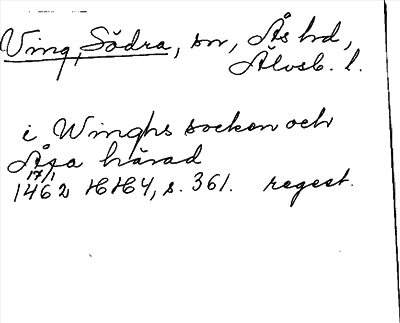 Ving, Södra, sn, Ås hd,
Älvsb. l.
i Winghs socken och
Åsa härad
17/1
1462 HH4, s. 361. regest.